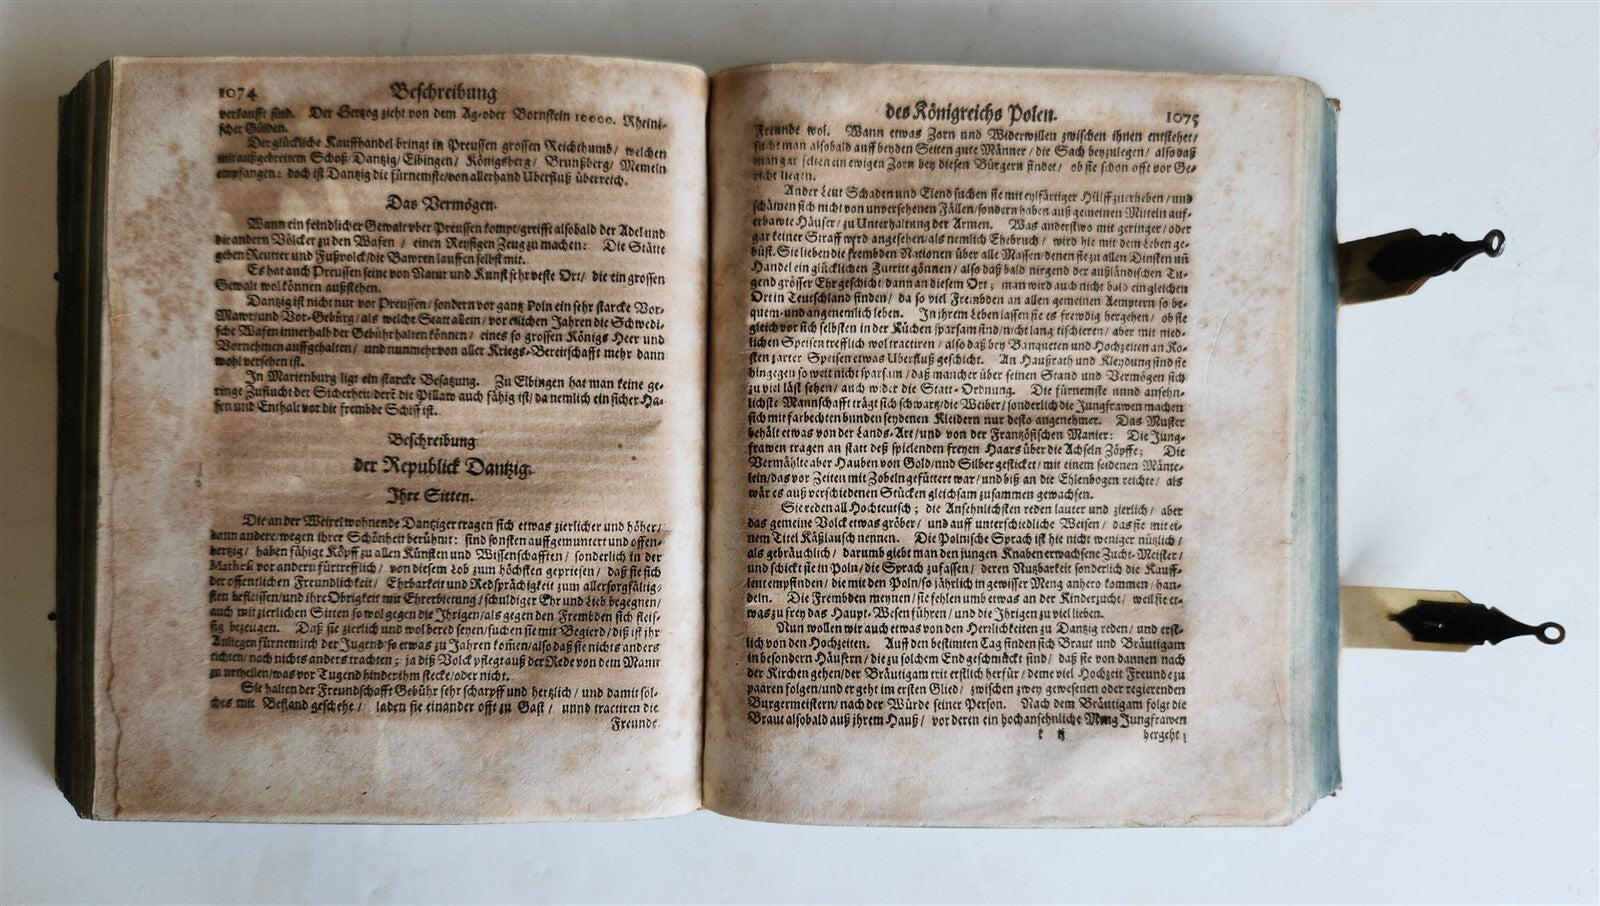 1074 Beschreibung
verkaufft sind. Der Hertzog zieht von dem Ag- oder Bornstein 10000. Rheini-
scher Gülden.
Der glückliche Kauffhandel bringt in Preussen grossen Reichthumb/ welchen
mit außgebreitem Schoß/ Dantzig/ Elbingen/ Königsberg/ Brunßberg/ Memeln
empfangen: doch ist Dantzig die fürnemste/ von allerhand Uberfluß überreich.
Das Vermögen.
Wann ein feindlicher Gewalt vber Preussen kompt/ greifft alsobald der Adel und
die andern Völcker zu den Wafen/ einen Reysigen Zeug zu machen: Die Stätte
geben Reutter und Fußvolck/ die Bawren lauffen selbst mit.
Es hat auch Preussen seine von Natur und Kunst sehr veste Ort/ die ein grossen
Gewalt wol können außstehen.
Dantzig ist nicht nur vor Preussen/ sondern vor gantz Poln ein sehr starcke Vor-
Mawr/ und Vor-Gebürg/ als welche Statt allein/ vor etlichen Jahren die Schwedi-
sche Wafen innerhalb der Gebühr halten können/ eines so grossen Königs Heer und
Vornehmen auffgehalten/ und nunmehr von aller Kriegs-Bereitschafft mehr dann
wohl versehen ist.
In Marienburg ligt ein starcke Besatzung. Zu Elbingen hat man keine ge-
ringe Zuflucht der Sicherheit/ derē die Pillaw auch fähig ist/ da nemlich ein sicher Ha-
fen und Enthalt vor die frembde Schiff ist.
Beschreibung
der Republick Dantzig.
Ihre Sitten.
Die an der Weixel wohnende Dantziger tragen sich etwas zierlicher und höher/
dann andere/ wegen ihrer Schönheit berühmt: sind sonsten auffgemuntert und offen-
hertzig/ haben fähige Köpff zu allen Künsten und Wissenschafften/ sonderlich in der
vor andern fürtrefflich/ von diesem Lob zum höchsten gepriesen/ daß sie sich
der offentlichen Freundlichkeit/ Ehrbarkeit und Redsprächigkeit zum allersorgfältig-
sten befleissen/ und ihre Obrigkeit mit Ehrerbietung/ schuldiger Ehr und Lieb begegnen/
auch mit zierlichen Sitten so wol gegen die Ihrigen/ als gegen den Frembden sich fleis-
sig bezeugen. Daß sie zierlich und wol bered seyen/ suchen sie mit Begierd/ diß ist ihr
Anliegen fürnemlich der Jugend/ so etwas zu Jahren kom̄en/ also daß sie nichts anders
tichten/ nach nichts anders trachten; ja diß Volck pflegt auß der Rede von dem Mann
zu urtheilen/ was vor Tugend hinder ihm stecke/ oder nicht.
Sie halten der Freundschafft Gebühr sehr scharpff und hertzlich/ und damit sol-
ches mit Bestand geschehe/ laden sie einander offt zu Gast/ unnd tractiren die
Freunde
des Königreichs Polen. 1075
Freunde wol. Wann etwas Zorn und Widerwillen zwischen ihnen entstehet/
sucht man alsobald auff beyden Seiten gute Männer/ die Sach beyzulegen/ also daß
man gar selten ein ewigen Zorn bey diesen Bürgern findet/ ob sie schon offt vor Ge-
richt liegen.
Ander Leut Schaden und Elend suchen sie mit eylfärtiger Hülff zu erheben/ und
schäwen sich nicht von unversehenen Fällen/ sondern haben auß gemeinen Mitteln auf-
erbawte Häuser/ zu Unterhaltung der Armen. Was anderstwo mit geringer/ oder
gar keiner Straff wird angesehen/ als nemlich Ehebruch/ wird hie mit dem Leben ge-
büst. Sie lieben die frembden Nationen über alle Massen/ denen sie zu allen Dinsten uñ
Handel ein glücklichen Zutritt gönnen/ also daß bald nirgend der außländischen Tu-
gend grösser Ehr geschicht dann an diesem Ort; man wird auch nicht bald ein gleichen
Ort in Teutschland finden/ da so viel Frembden an allen gemeinen Aemptern so be-
quem- und angenemlich leben. In ihrem Leben lassen sie es frewdig hergehen/ ob sie
gleich vor sich selbsten in der Küchen sparsam sind/ nicht lang tischieren/ aber mit nied-
lichen Speisen trefflich wol tractiren/ also daß bey Banqueten und Hochzeiten an Ko-
sten zarter Speisen etwas Uberfluß geschicht. An Haußrath und Kleydung sind sie
hingegen so weit nicht sparsam/ daß mancher über seinen Stand und Vermögen sich
zu viel läst sehen/ auch wider die Statt-Ordnung. Die fürnemste unnd ansehn-
lichste Mannschafft trägt sich schwartz/ die Weiber/ sonderlich die Jungfrawen machen
sich mit farbechten bunden seydenen Kleidern nur desto angenehmer. Das Muster
behält etwas von der Lands-Art/ und von der Frantzösischen Manier: Die Jung-
frawen tragen an statt deß spielenden freyen Haars über die Achseln Zöpffe; Die
Vermählte aber Hauben von Gold/ und Silber gesticket/ mit einem seidenen Mänte-
lein/ das vor Zeiten mit Zobeln gefüttert war/ und biß an die Ehlenbogen reichte/ als
wär es auß verschiedenen Stücken gleichsam zusammen gewachsen.
Sie reden all Hochteutsch; die Ansehnlichsten reden lauter und zierlich/ aber
das gemeine Volck etwas gröber/ und auff unterschiedliche Weisen/ das sie mit ei-
nem Titel Käßlausch nennen. Die Polnische Sprach ist hie nicht weniger nützlich/
als gebräuchlich/ darumb giebt man den jungen Knaben erwachsene Zucht-Meister/
und schickt sie in Poln/ die Sprach zu fassen/ deren Nutzbarkeit sonderlich die Kauff-
leut empfinden/ die mit den Poln/ so jährlich in gewisser Meng anhero kommen/ han-
deln. Die Frembden meynen/ sie fehlen umb etwas an der Kinderzucht/ weil sie et-
was zu frey das Haupt-Wesen führen/ und die Ihrigen zu viel lieben.
Nun wollen wir auch etwas von den Herrlichkeiten zu Dantzig reden/ und erst-
lich von den Hochzeiten. Auff den bestimten Tag finden sich Braut und Bräutigam
in besondern Häusern/ die zu solchem End geschmückt sind/ daß sie von dannen nach
der Kirchen gehen/ der Bräutigam trit erstlich herfür/ deme viel Hochzeit Freunde zu
paaren folgen/ und er geht im ersten Glied/ zwischen zwey gewesenen oder regierenden
Burgermeistern/ nach der Würde seiner Person. Nach dem Bräutigam folgt die
Braut alsobald auß ihrem Hauß/ vor deren ein hochansehnliche Meng Jungfrawen
hergeht;